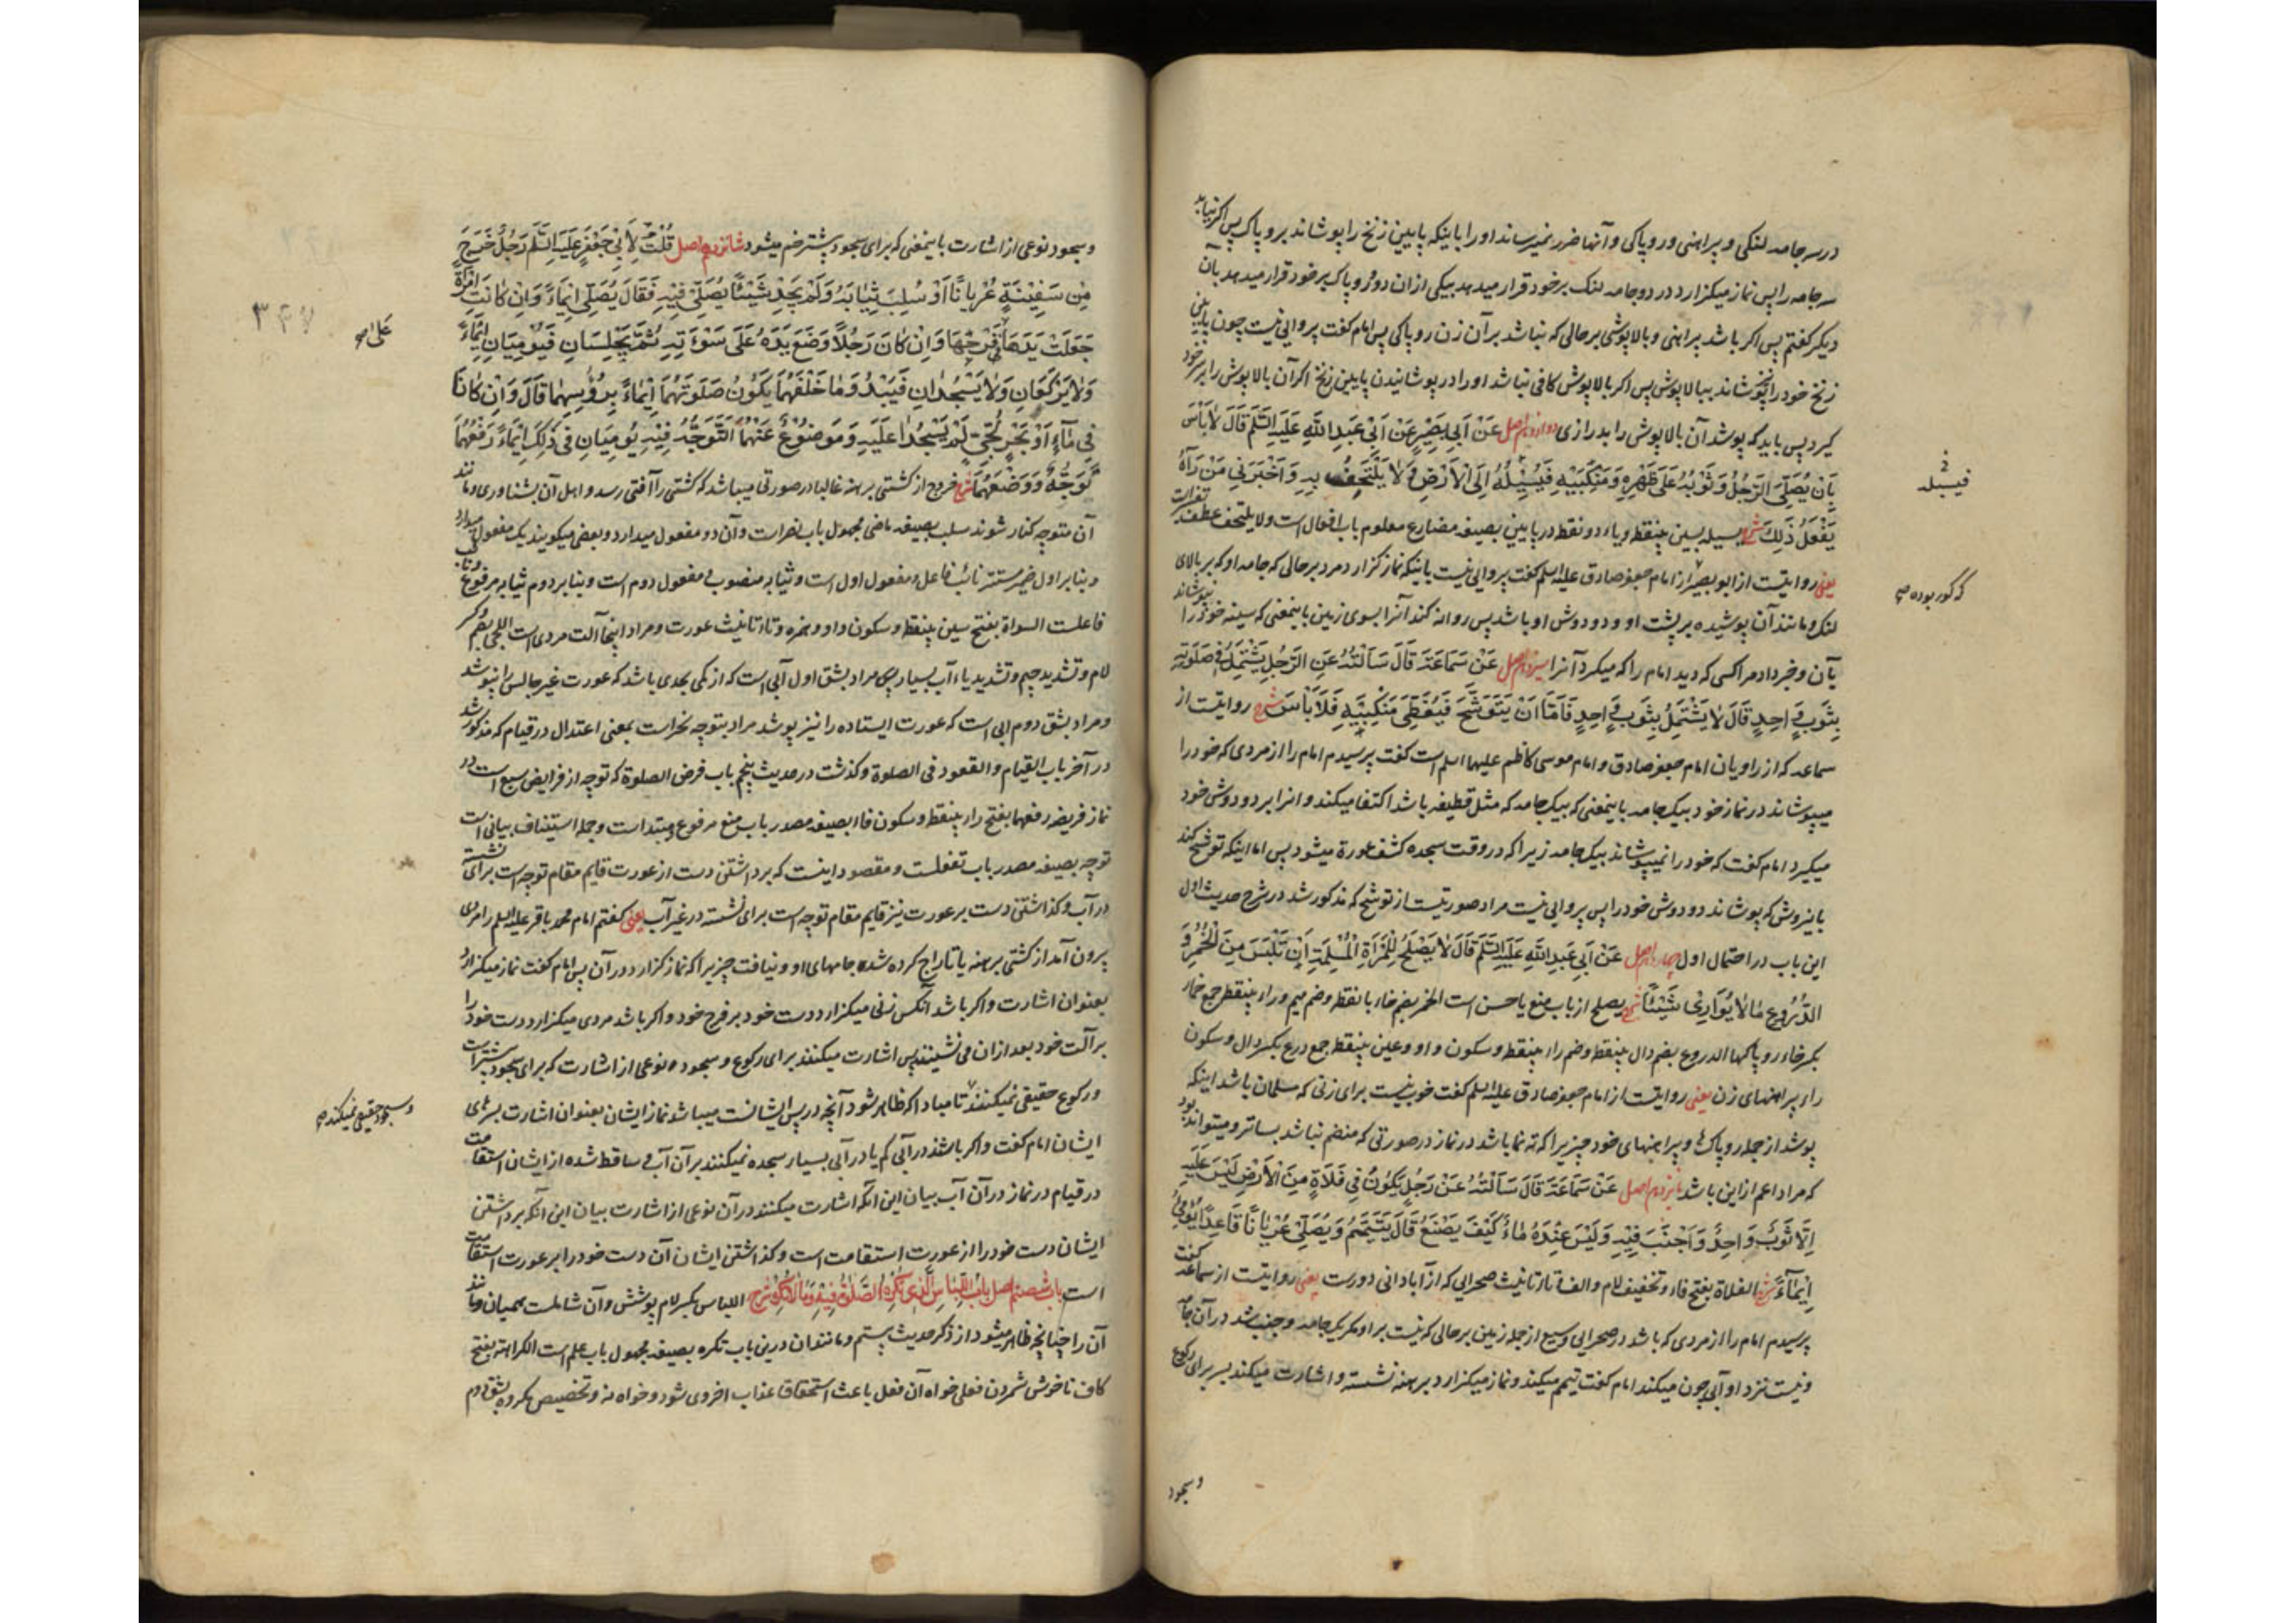 در سه جامه لنکی و پیراهنی و روپاکی و آنها ضرر نمیرساند او را باینکه پایین زنخ را پوشاند بروپاک پس اکر نیابد
سه جامه را پس نماز میکزارد در دو جامه لنک بر خود قرار میدهد بیکی از ان دو و روپاک بر خود قرار میدهد بآن
دیکر کفتم پس اکر باشد پیراهنی و بالاپوشی بر حالی که نباشد بر آن زن روپاکی پس امام کفت پروایی نیست چون پایین
زنخ خود را پوشاند ببالاپوش پس اکر بالاپوش کافی نباشد او را در پوشانیدن پایین زنخ اکر آن بالاپوش را بر سر خود
کیرد پس باید که پوشد آن بالاپوش را بدرازی دوازدهم اصل عَنْ أَبِي بَصِيْرٍ عَنْ اَبِي عَبدِ اللهِ عَلَيْهِ السَّلَم قَالَ لَا بَأْسَ
بِأَنْ يُصَلِّيَ الرَّجُلُ وَثَوْبُهُ عَلَى ظَهْرِهِ وَمَنْكِبَيْهِ فَيُسْبِلُهُ اِلَى الْاَرْضِ وَلَا يَلْتَحِفُ بِهِ وَاَخْبَرَنِي مَنْ رَآهُ
يَفْعَلُ ذَلِكَ شرح یسیله بسین بینقطه و یاء دو نقطه در پایین بصیغه مضارع معلوم باب افعال است ولا یلتحف عطف تفسیر است
یعنی روایتست از ابو بصیر از امام جعفر صادق علیه السلم کفت پروایی نیست باینکه نماز کزارد مرد بر حالی که جامه او که بر بالای
لنک و مانند آن پوشیده بر پشت او و دو دوش او باشد پس روانه کند آنرا بسوی زمین باینمعنی که سینه خود را نپوشاند
بآن و خبر داد مرا کسی که دید امام را که میکرد آنرا سیزدهم اصل عَنْ سَمَاعَةَ قَالَ سَاَلْتُهُ عَنِ الرَّجُلِ يَشْتَمِلُ فِي صَلَوتِهِ
بِثَوبٍ وَاحِدٍ قَالَ لَا يَشْتَمِلُ بِثَوبٍ وَاحِدٍ فَاَمَّا اَنْ يَتَوَشَّحَ فَيُغَطِّيَ مَنْكِبَيْهِ فَلَا بَأْسَ شرح روایتست از
سماعه که از راویان امام جعفر صادق و امام موسی کاظم علیهما السلم است کفت پرسیدم امام را از مردی که خود را
میپوشاند در نماز خود بیک جامه باینمعنی که بیک جامه که مثل قطیفه باشد اکتفا میکند و انرا بر دو دوش خود
میکیرد امام کفت که خود را نمیپوشاند بیک جامه زیرا که در وقت سجده کشف عورة میشود پس اما اینکه توشح کند
باینروش که پوشاند دو دوش خود را پس پروایی نیست مراد صورتیست از توشح که مذکور شد در شرح حدیث اول
این باب در احتمال اول چهاردهم اصل عَنْ اَبِي عَبدِ اللهِ عَلَيْهِ السَّلَم قَالَ لَا يَصْلَحُ لِلْمَرْأَةِ الْمُسْلِمَةِ اَنْ تَلْبَسَ مِنَ الْخُمُرِ وَ
الدُّرُوعِ مَا لَا يُوَارِي شَيْئًا شرح یصلح از باب منع یا حسن است الخمر بضم خاء با نقطه و ضم میم و راء بینقطه جمع خمار
بکسر خاء روپاکها الدروع بضم دال بینقطه و ضم راء بینقطه و سکون واو و عین بینقطه جمع درع بکسر دال و سکون
راء پیراهنهای زن یعنی روایتست از امام جعفر صادق علیه السلم کفت خوب نیست برای زنی که مسلمان باشد اینکه
پوشد از جمله روپاکها و پیراهنهای خود چیزیرا که ته نما باشد در نماز در صورتی که منضم نباشد بساتر و میتواند بود
که مراد اعم از این باشد پانزدهم اصل عَنْ سَمَاعَةَ قَالَ سَاَلْتُهُ عَنْ رَجُلٍ يَكُونُ فِي فَلَاةٍ مِنَ الْاَرْضِ لَيْسَ عَلَيْهِ
اِلَّا ثَوْبٌ وَاحِدٌ وَاَجْنَبَ فِيْهِ وَلَيْسَ عِنْدَهُ مَاءٌ كَيْفَ يَصْنَعُ قَالَ يَتَيَمَّمُ وَيُصَلِّي عُرْيَانًا قَاعِدًا يُوْمِئُ
اِيْمَاءً شرح الفلاة بفتح فاء و تخفیف لام و الف و تاء تانیث صحرایی که از آبادانی دورست یعنی روایتست از سماعه کفت
پرسیدم امام را از مردی که باشد در صحرایی وسیع از جمله زمین بر حالی که نیست بر او مکر یک جامه و جنب شد در آن جامه
و نیست نزد او آبی چون میکند امام کفت تیمم میکند و نماز میکزارد برهنه نشسته و اشارت میکند بسر برای رکوع
وسجود
فیسبله
که کور بوده صح
و سجود نوعی از اشارت باینمعنی که برای سجود پیشتر خم میشود شانزدهم اصل قُلْتُ لِاَبِي جَعْفَرٍ عَلَيْهِ السَّلَم رَجُلٌ خَرَجَ
مِنْ سَفِيْنَةٍ عُرْيَانًا اَوْ سُلِبَ ثِيَابَهُ وَلَمْ يَجِدْ شَيْئًا يُصَلِّي فِيْهِ فَقَالَ يُصَلِّي اِيْمَاءً وَاِنْ كَانَتِ امْرَأَةً
جَعَلَتْ يَدَهَا عَلَى فَرْجِهَا وَاِنْ كَانَ رَجُلًا وَضَعَ يَدَهُ عَلَى سَوْءَتِهِ ثُمَّ يَجْلِسَانِ فَيُومِيَانِ اِيْمَاءً
وَلَا يَرْكَعَانِ وَلَا يَسْجُدَانِ فَيَبْدُوَ مَا خَلْفَهُمَا يَكُونُ صَلَوتُهُمَا اِيْمَاءً بِرُؤُسِهِمَا قَالَ وَاِنْ كَانَا
فِي مَاءٍ اَوْ بَحْرٍ لُجِّيٍّ لَمْ يَسْجُدَا عَلَيْهِ وَمَوضُوعٌ عَنْهُمَا التَّوَجُّهُ فِيْهِ يُومِيَانِ فِي ذَلِكَ اِيْمَاءً رَفْعُهُمَا
تَوَجُّهٌ وَوَضْعُهُمَا شرح خروج از کشتی برهنه غالبا در صورتی میباشد که کشتی را آفتی رسد و اهل آن بشناوری و مانند
آن متوجه کنار شوند سلب بصیغه ماضی مجهول باب نصر است و آن دو مفعول میدارد و بعضی میکویند یک مفعول میدارد
و بنابر اول ضمیر مستتر نائب فاعل و مفعول اول است و ثیابه منصوب و مفعول دوم است و بنابر دوم ثیابه مرفوع و نائب
فاعلست السواة بفتح سین بینقطه و سکون واو و همزه و تاء تانیث عورت و مراد اینجا آلت مردی است اللجی بضم و کسر
لام و تشدید جیم و تشدید یاء آب بسیار پس مراد بشق اول آبی است که از کمی بحدی باشد که عورت غیر جالس را نپوشد
و مراد بشق دوم ابی است که عورت ایستاده را نیز پوشد مراد بتوجه نحر است بمعنی اعتدال در قیام که مذکور شد
در آخر باب القیام والقعود فی الصلوة و کذشت در حدیث پنجم باب فرض الصلوة که توجه از فرایض سبع است در
نماز فریضه رفعهما بفتح راء بینقطه و سکون فاء بصیغه مصدر باب منع مرفوع و مبتداست و جمله استیناف بیانی است
توجه بصیغه مصدر باب تفعلست و مقصود اینست که برداشتن دست از عورت قایم مقام توجه است برای نشسته
در آب و کذاشتن دست بر عورت نیز قایم مقام توجه است برای نشسته در غیر آب یعنی کفتم امام محمد باقر علیه السلم را مردی
بیرون آمد از کشتی برهنه یا تاراج کرده شده جامهای او و نیافت چیزیرا که نماز کزارد در آن پس امام کفت نماز میکزارد
بعنوان اشارت و اکر باشد آنکس زنی میکزارد دست خود بر فرج خود و اکر باشد مردی میکزارد دست خود را
بر آلت خود بعد از ان می نشینند پس اشارت میکنند برای رکوع و سجود نوعی از اشارت که برای سجود بیشتر است
و رکوع حقیقی نمیکنند تا مبادا که ظاهر شود آنچه در پس ایشانست میباشد نماز ایشان بعنوان اشارت بسرهای
ایشان امام کفت و اکر باشند در آبی کم یا در آبی بسیار سجده نمیکنند بر آن آب و ساقط شده از ایشان استقامت
در قیام در نماز در آن آب بیان این آنکه اشارت میکنند در آن نوعی از اشارت بیان این آنکه برداشتن
ایشان دست خود را از عورت استقامت است و کذاشتن ایشان آن دست خود را بر عورت استقامت
است باب شصتم اصل بَابُ اللِّبَاسِ الَّذِي تُكْرَهُ الصَّلَوةُ فِيْهِ وَمَا لَا تُكْرَهُ شرح اللباس بکسر لام پوشش و آن شاملست همیان و مانند
آن را چنانچه ظاهر میشود از ذکر حدیث بیستم و مانند ان درین باب تکره بصیغه مجهول باب علم است الکراهة بفتح
کاف ناخوش شمردن فعلی خواه آن فعل باعث استحقاق عذاب اخروی شود و خواه نه و تخصیص مکروه بشق دوم
۳۴۷
و سجود حقیقی نمیکنند صح